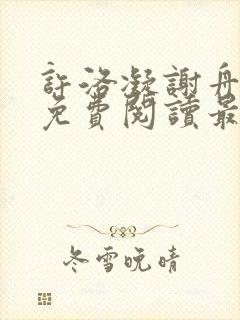 許洛凝謝舟
免費閱讀最
冬雪晚晴